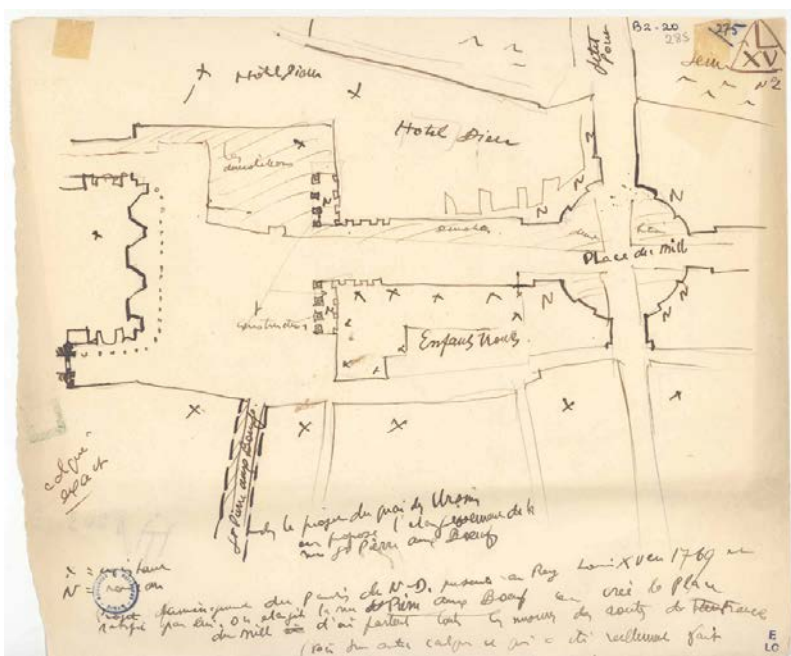 B2-20
275
285
L
XV
N°2
Petit
Pont
Hôtel Dieu
Hotel Dieu
Place du Mill
constructions
Enfants Trouvés
St Pierre aux Boeufs
calque
exact
ds le projet du quai des Ursins
on propose l'élargissement de la
rue St Pierre aux Boeufs
X =
N =
Projet du parvis de N-D. au Roy Louis XV en 1769
par lui. On élargit la rue St Pierre aux Boeufs on crée la Place
du Mill d'où partent toutes les mesures des routes de France
(voir sur autre calque ce qui a été réellement fait
E
LC